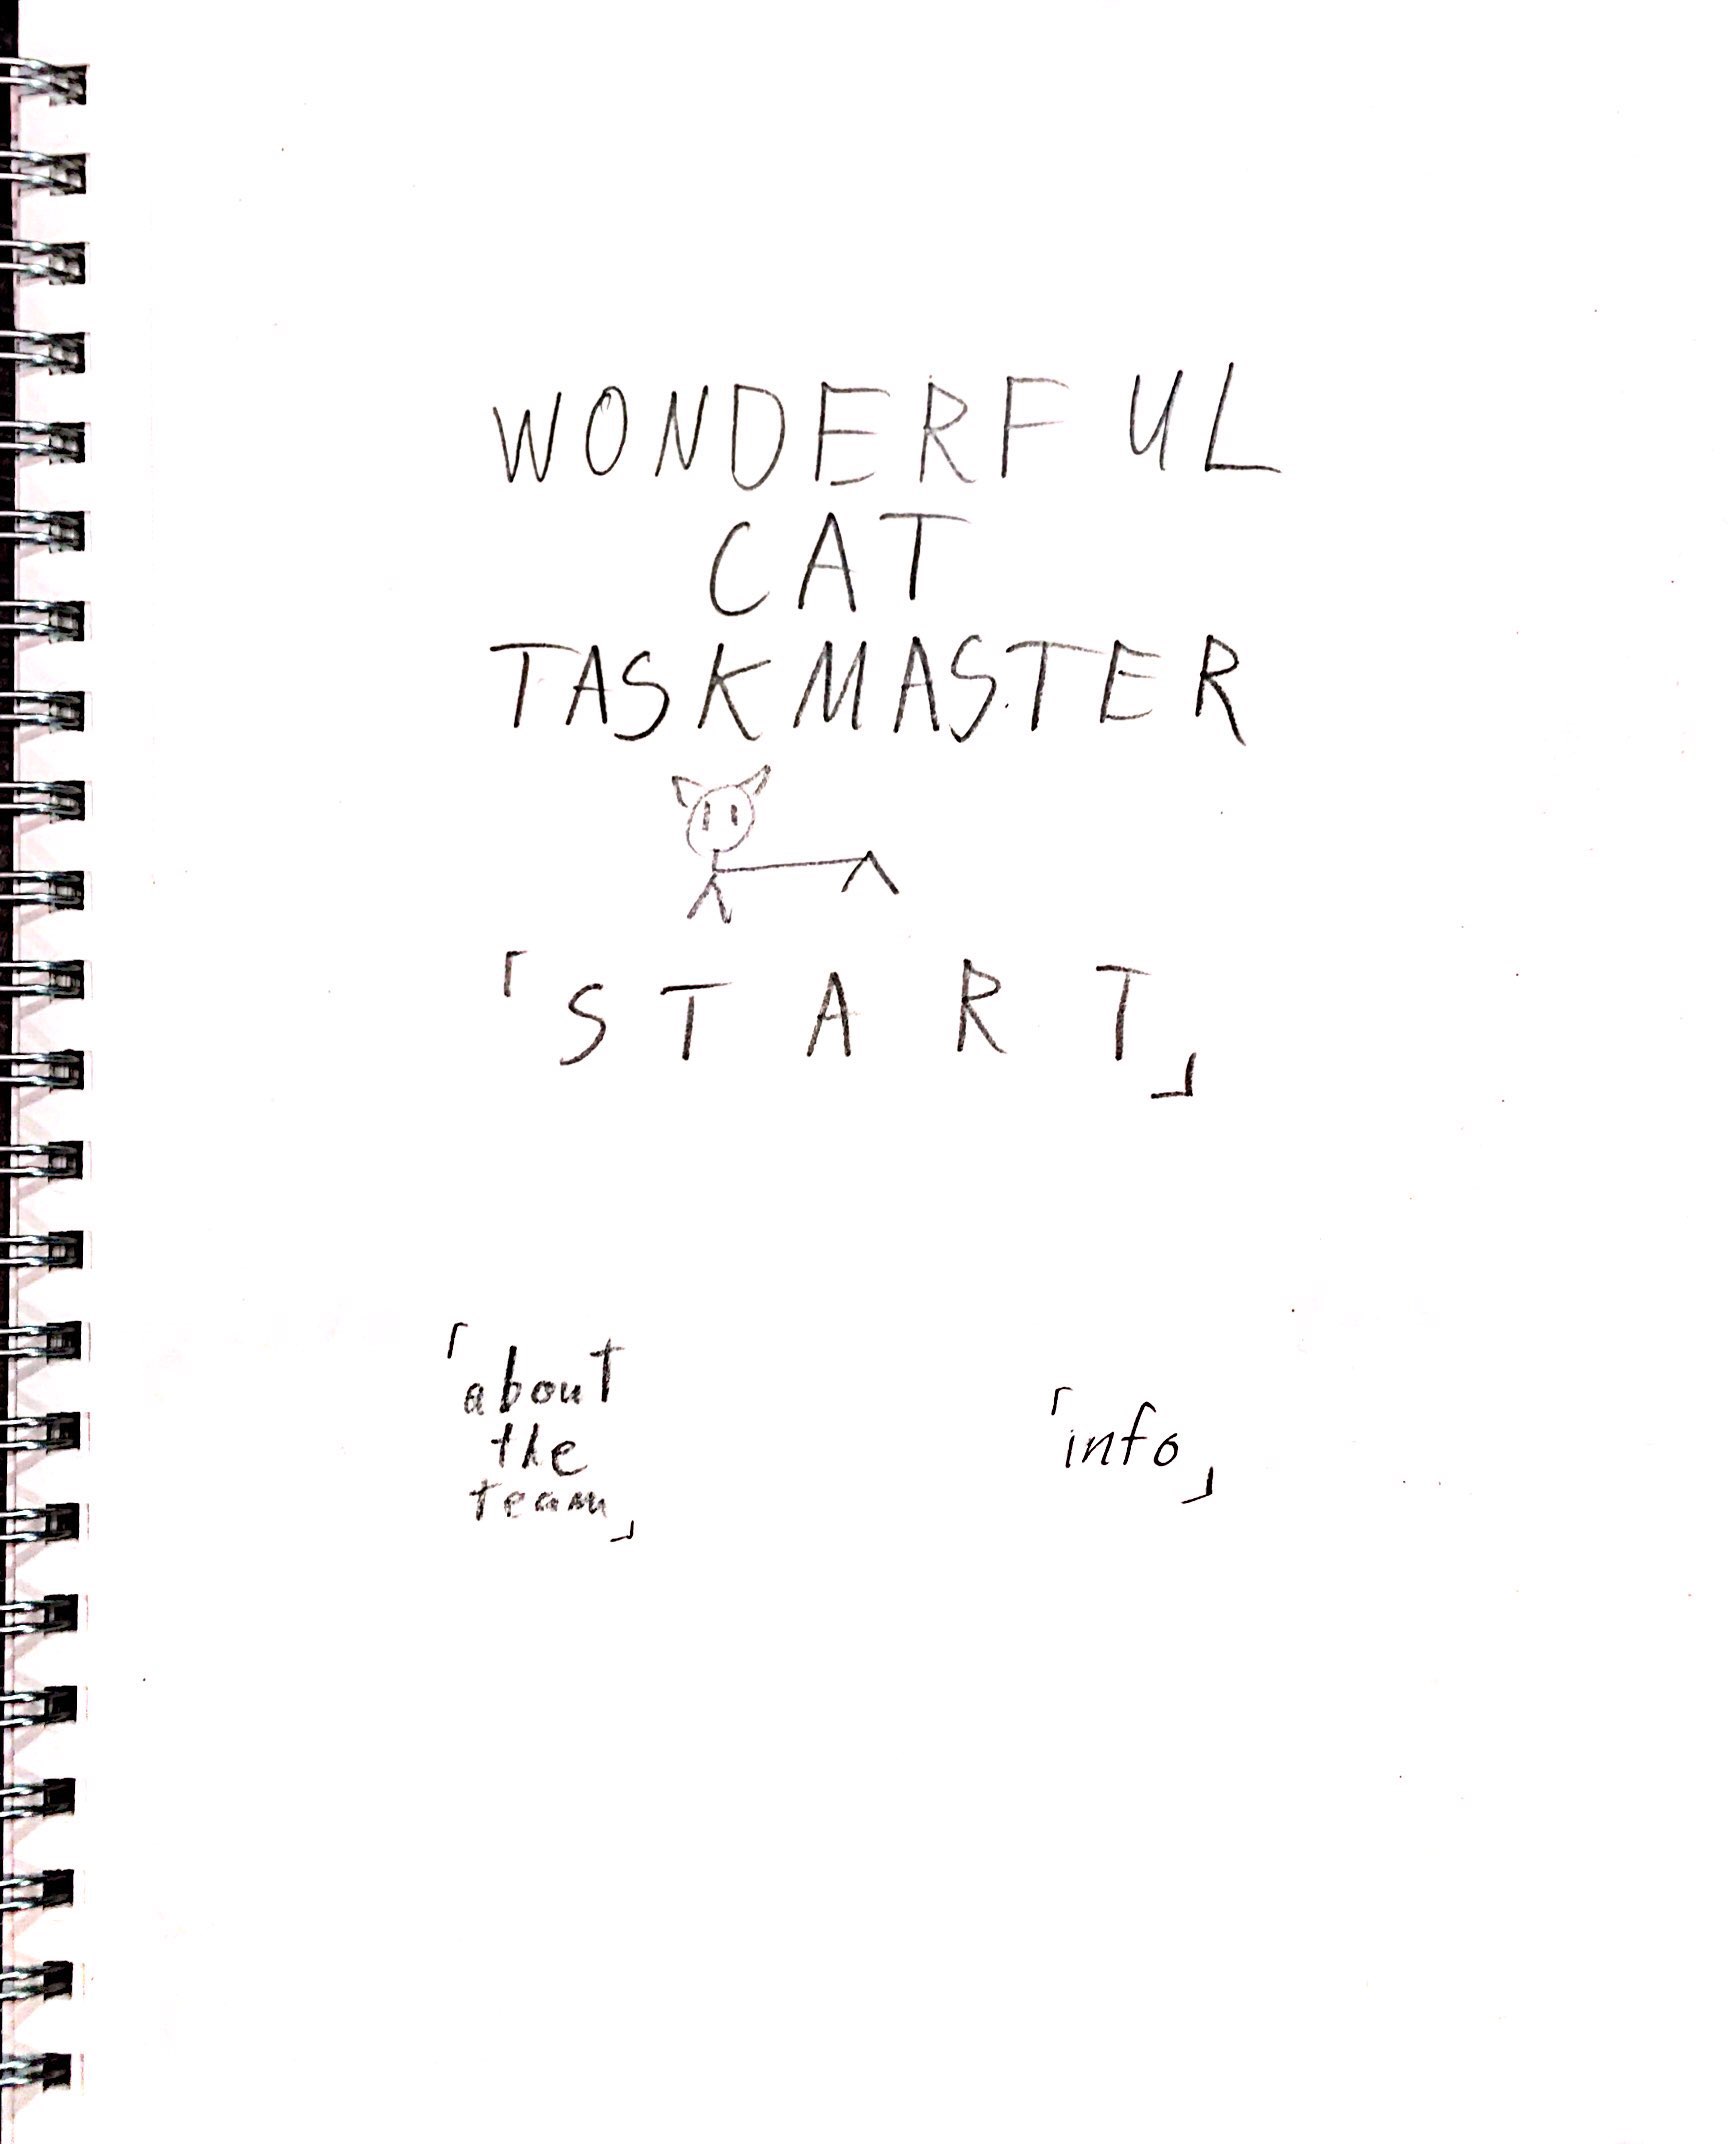 WONDERFUL
CAT
TASKMASTER
「START」
「about
the
team」
「info」